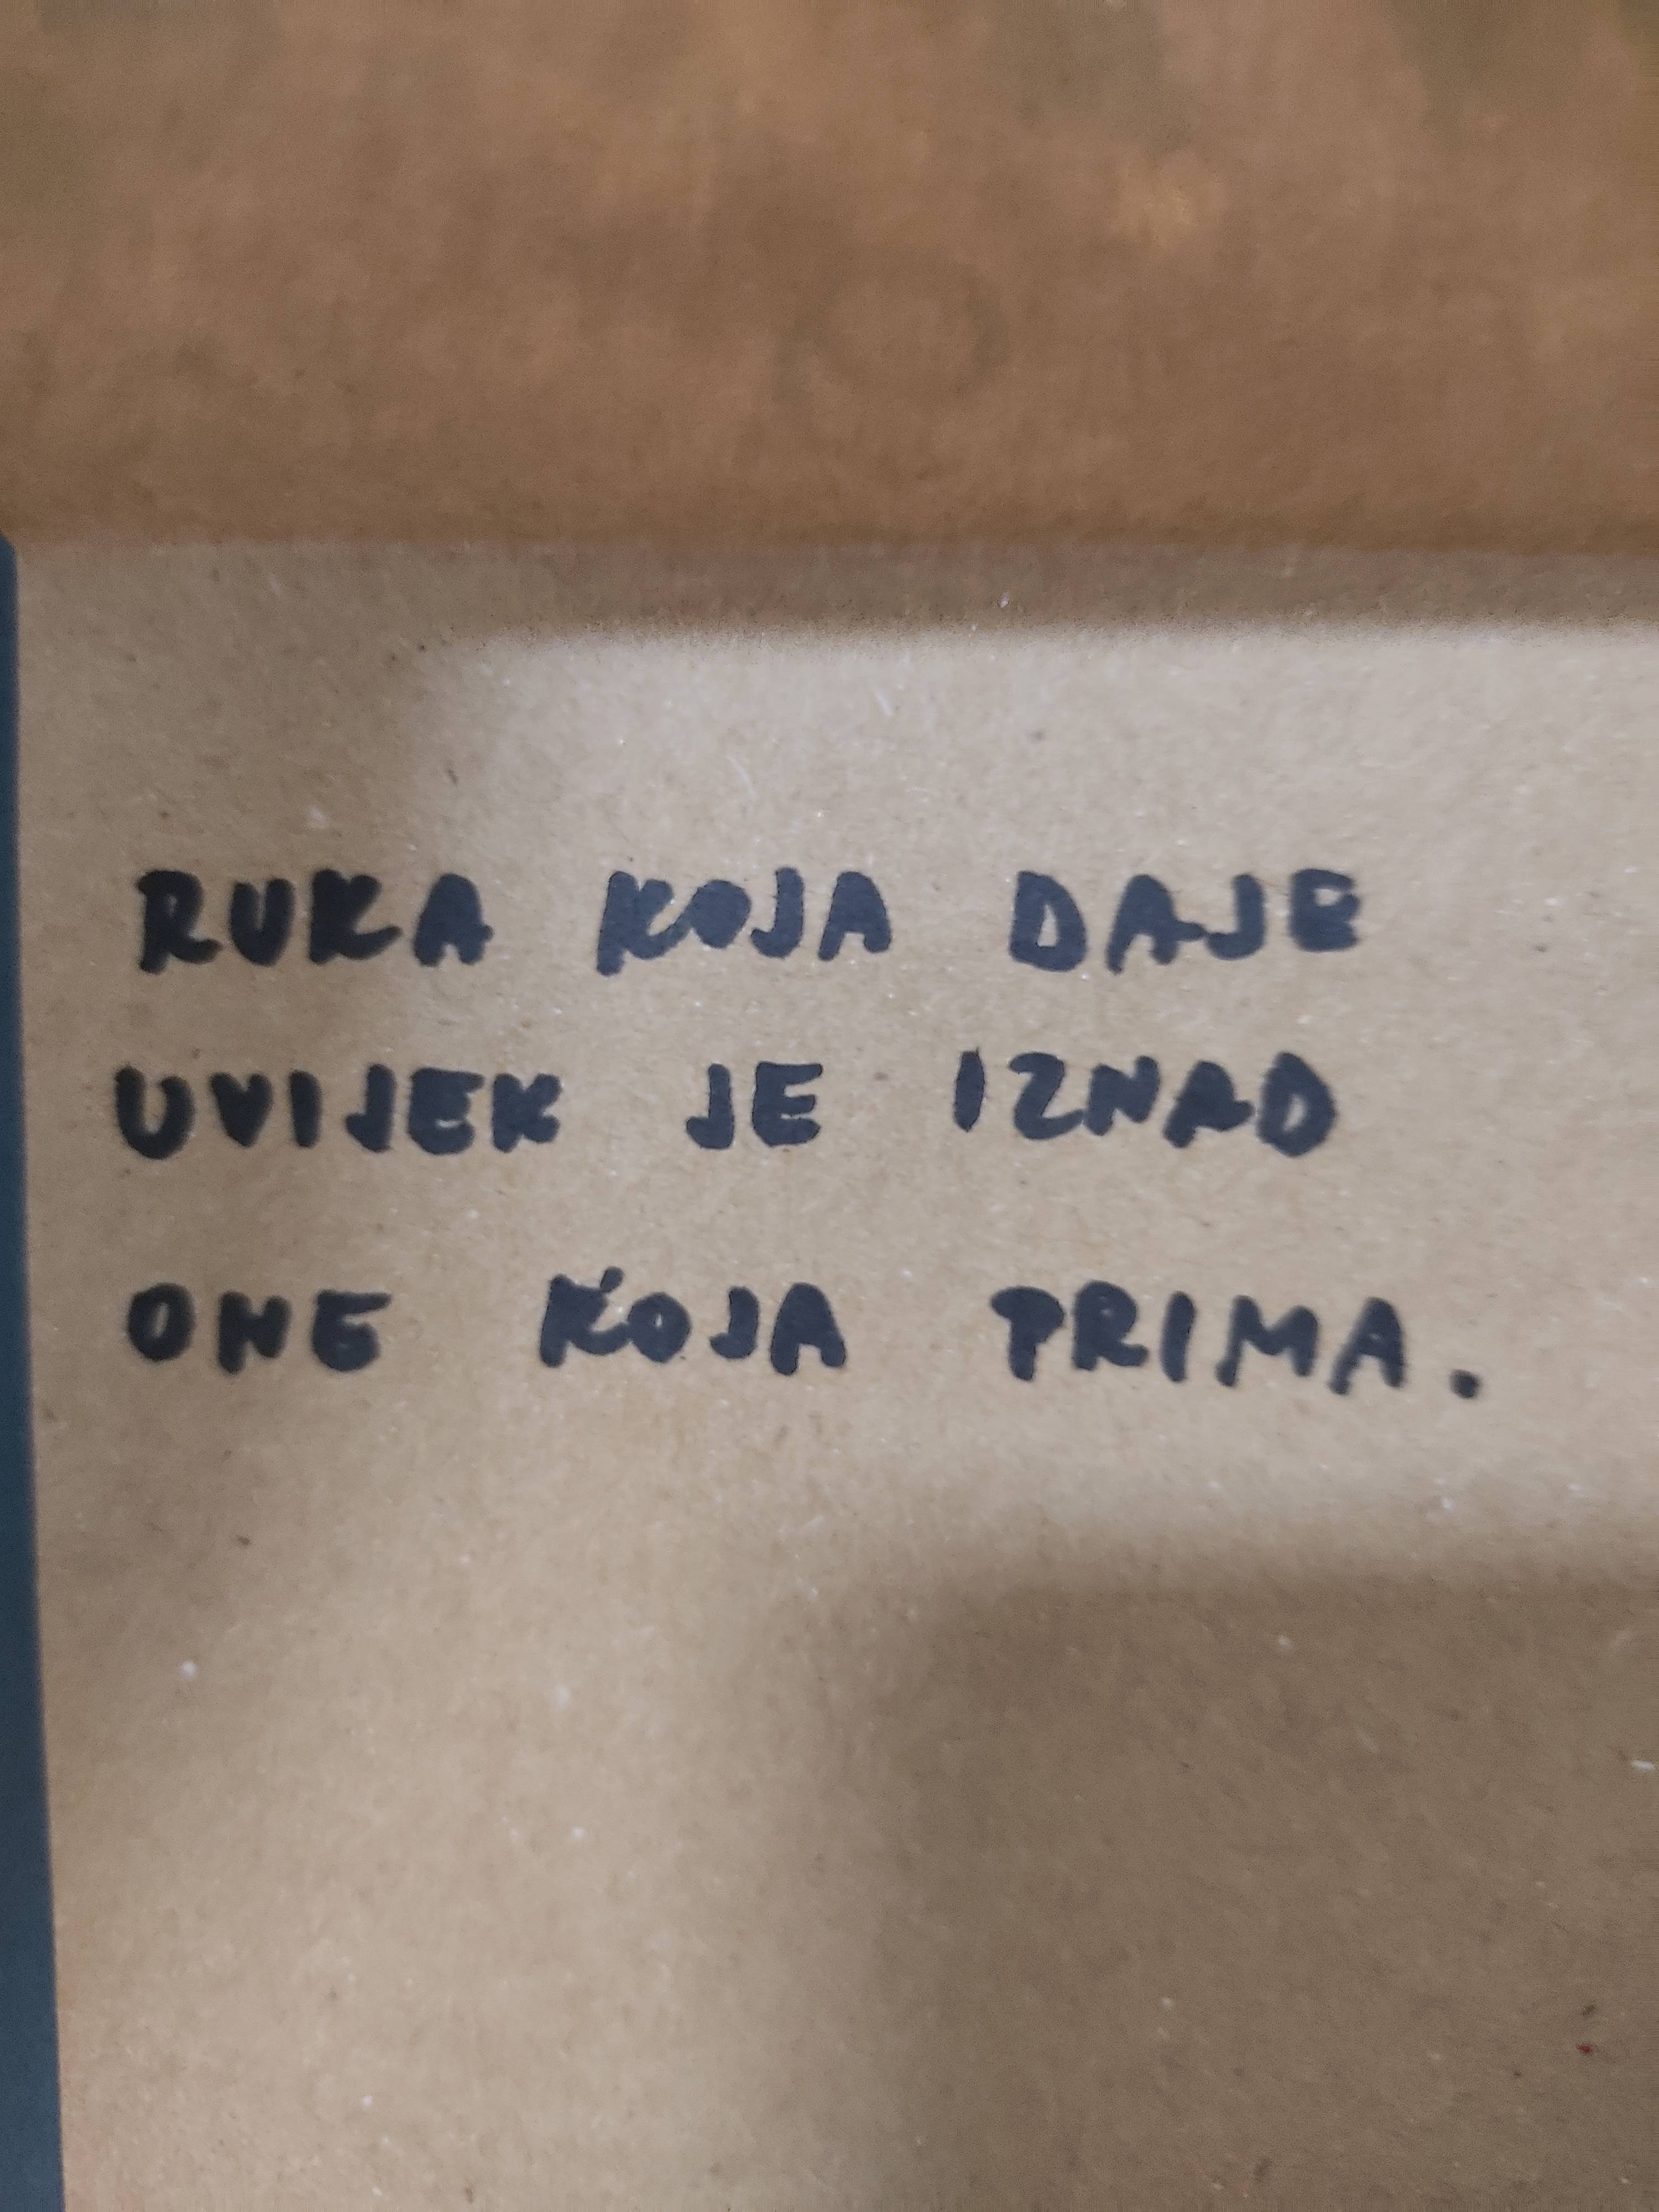 RUKA KOJA DAJE
UVIJEK JE IZNAD
ONE KOJA PRIMA.